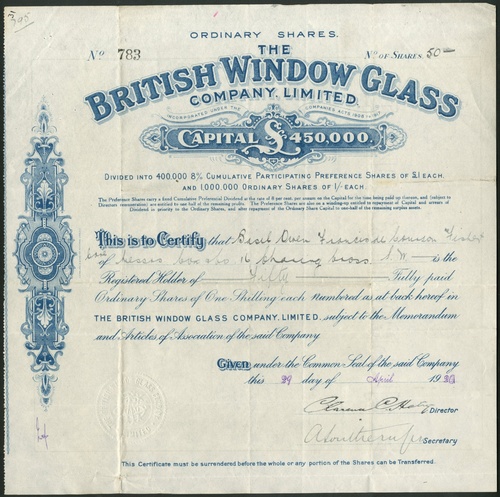 ORDINARY SHARES.
Nº 783
Nº OF SHARES. 50
THE
BRITISH WINDOW GLASS
COMPANY, LIMITED.
INCORPORATED UNDER THE COMPANIES ACTS 1908 TO 1917
CAPITAL £450,000.
DIVIDED INTO 400,000 8% CUMULATIVE PARTICIPATING PREFERENCE SHARES OF £1 EACH,
AND 1,000,000 ORDINARY SHARES OF 1/- EACH.
The Preference Shares carry a fixed Cumulative Preferential Dividend at the rate of 8 per cent. per annum on the Capital for the time being paid up thereon, and (subject to
Directors remuneration) are entitled to one-half of the remaining profits of the Company. The Preference Shares are also on a winding-up entitled to repayment of Capital and arrears of
Dividend in priority to the Ordinary Shares, and after repayment of the Ordinary Share Capital to one-half of the remaining surplus assets.
This is to Certify that Basil Owen Francis
of S.W. is the
Registered Holder of Fifty Fully paid
Ordinary Shares of One Shilling each Numbered as at back hereof in
THE BRITISH WINDOW GLASS COMPANY, LIMITED, subject to the Memorandum
and Articles of Association of the said Company.
Given under the Common Seal of the said Company
this 29 day of April 1920
Clarence C. Director
Secretary
This Certificate must be surrendered before the whole or any portion of the Shares can be Transferred.